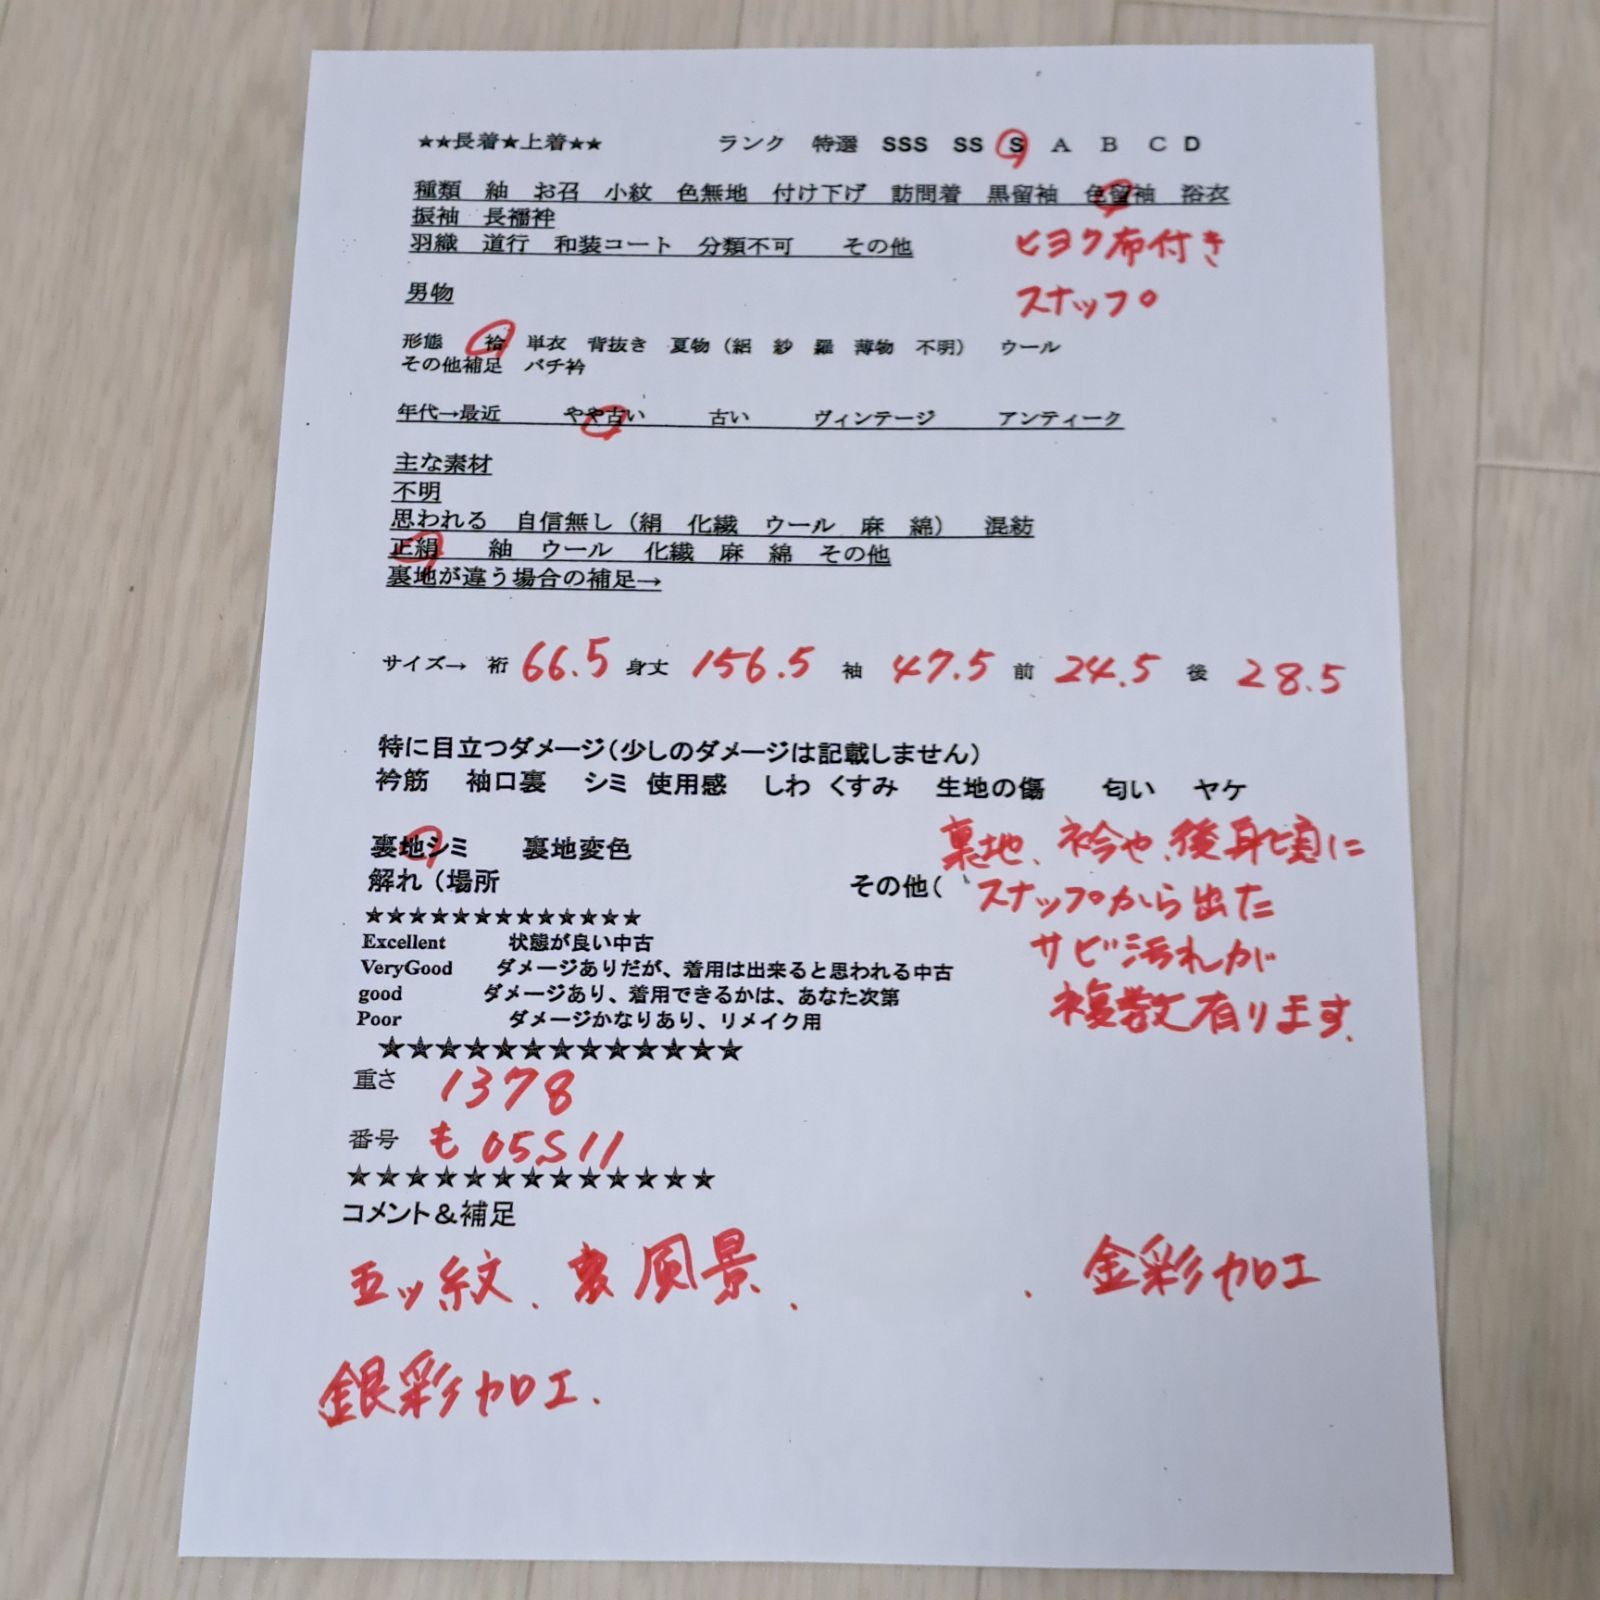 ★★長着★上着★★ ランク 特選 SSS SS S A B C D
種類 紬 お召 小紋 色無地 付け下げ 訪問着 黒留袖 色留袖 浴衣
振袖 長襦袢
羽織 道行 和装コート 分類不可 その他
ヒヨク布付き
スナップ。
男物
形態 袷 単衣 背抜き 夏物（絽 紗 羅 薄物 不明） ウール
その他補足 バチ衿
年代→最近 やや古い 古い ヴィンテージ アンティーク
主な素材
不明
思われる 自信無し（絹 化繊 ウール 麻 綿） 混紡
正絹 紬 ウール 化繊 麻 綿 その他
裏地が違う場合の補足→
サイズ→ 裄 66.5 身丈 156.5 袖 47.5 前 24.5 後 28.5
特に目立つダメージ（少しのダメージは記載しません）
衿筋 袖口裏 シミ 使用感 しわ くすみ 生地の傷 匂い ヤケ
裏地シミ 裏地変色
解れ（場所 その他（
裏地、衿や、後身頃に
スナップから出た
サビ汚れが
複数有ります.
★★★★★★★★★★★★★
Excellent 状態が良い中古
VeryGood ダメージありだが、着用は出来ると思われる中古
good ダメージあり、着用できるかは、あなた次第
Poor ダメージかなりあり、リメイク用
★★★★★★★★★★★★★
重さ 1378
番号 も05S11
★★★★★★★★★★★★★
コメント＆補足
五ッ紋、裏風景、 . 金彩加工
銀彩加工.